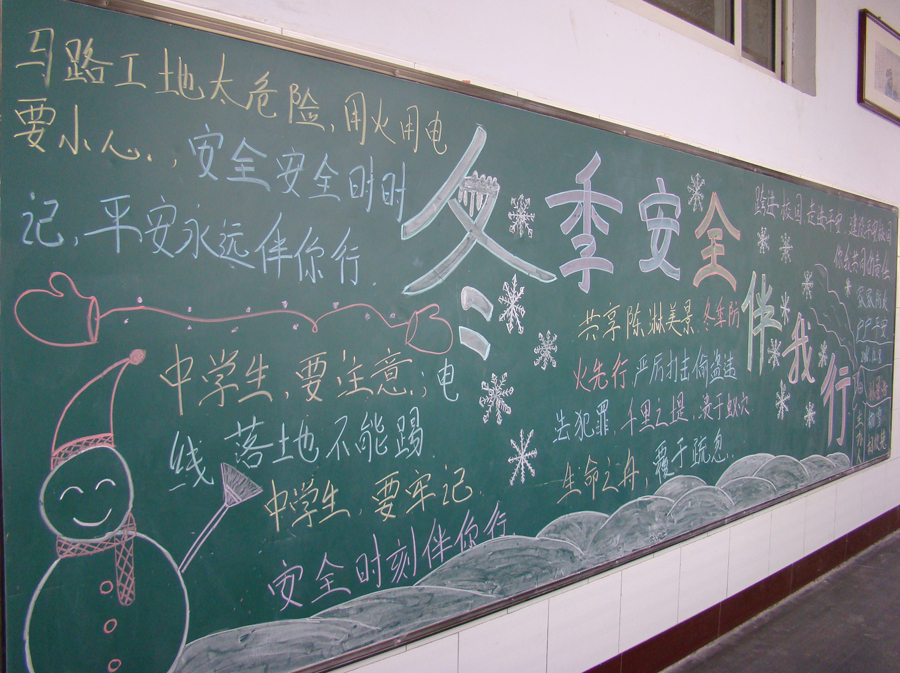 马路工地太危险,用火用电
要小心.,安全安全时时
记,平安永远伴你行.
中学生,要注意;电
线落地不能踢
中学生,要牢记.
安全时刻伴你行
冬季安全
伴我行
共享陈淋美景 冬季防
火先行 严厉打击偷盗违
法犯罪.千里之堤,溃于蚁穴
生命之舟,覆于疏忽.
跨进校园 走进平安